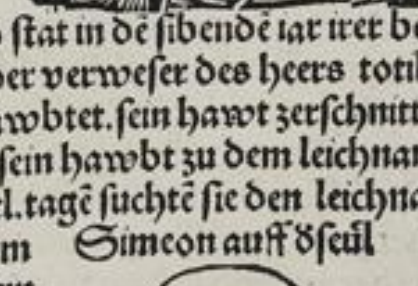 stat in dē sibendē iar irer b
er verweser des heers toti
wbtet. sein hawt zerschnitt
sein hawbt zu dem leichnam
l. tagē suchtē sie den leichna
m Simeon auff ď seül